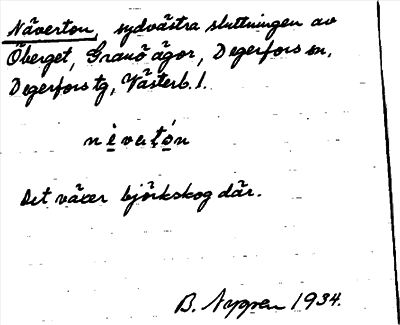 Näverton, sydvästra sluttningen av
Öberget, Granö ägor, Degerfors sn,
Degerfors tg, Västerb. l.
nèvatón
Det växer björkskog där.
B. Nyggren 1934.